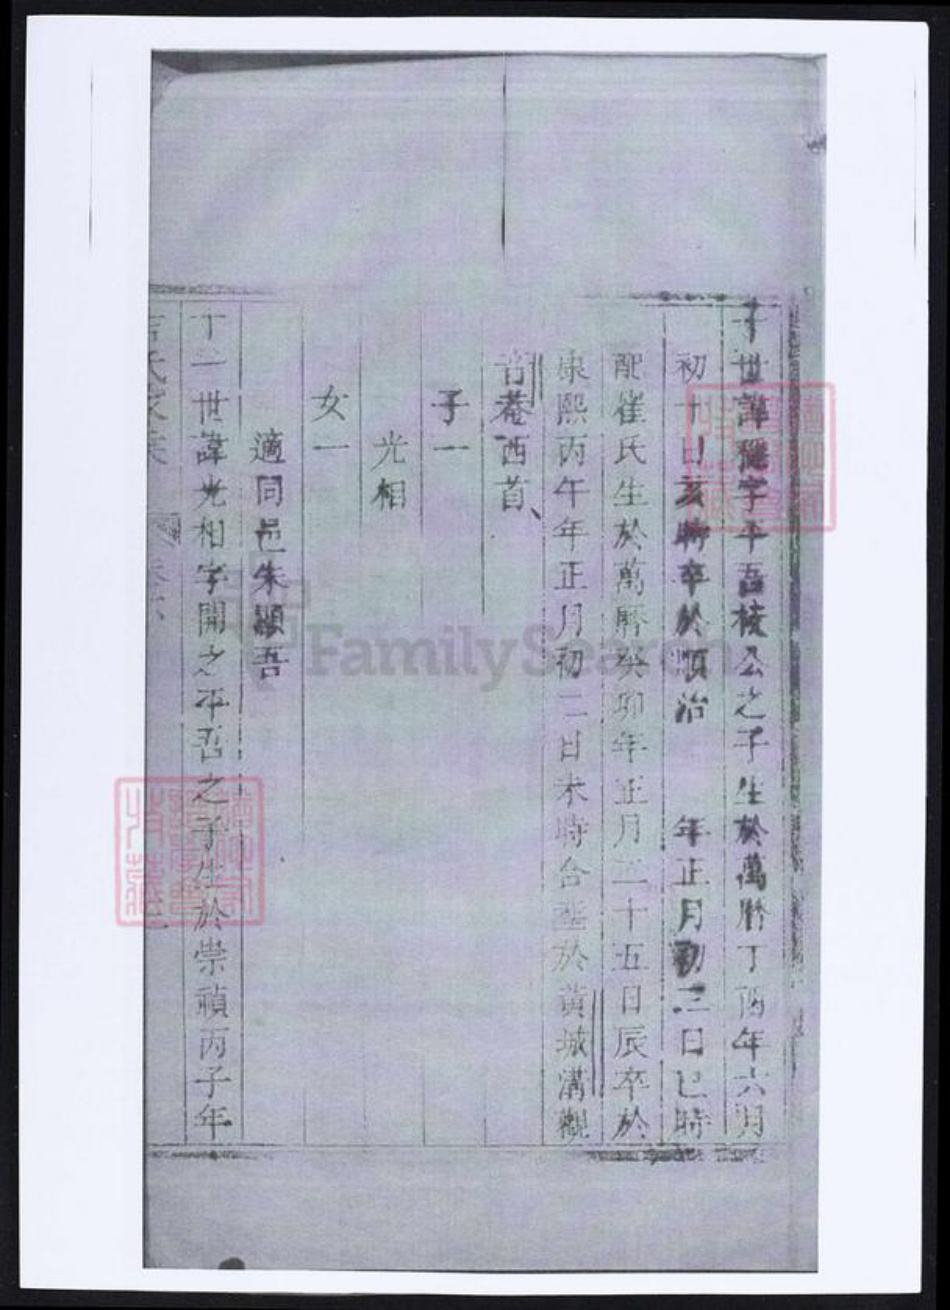 十世諱繼字平吾棱公之子生於萬曆丁酉年六月
初十日亥時卒於順治　年正月初三日巳時
配崔氏生於萬曆癸卯年正月二十五日辰卒於
康熙丙午年正月初二日未時合塟於黃城溝觀
音菴西首、
子一
光相
女一
適同邑朱顯吾
十一世諱光相字開之平吾之子生於崇禎丙子年
FamilySearch